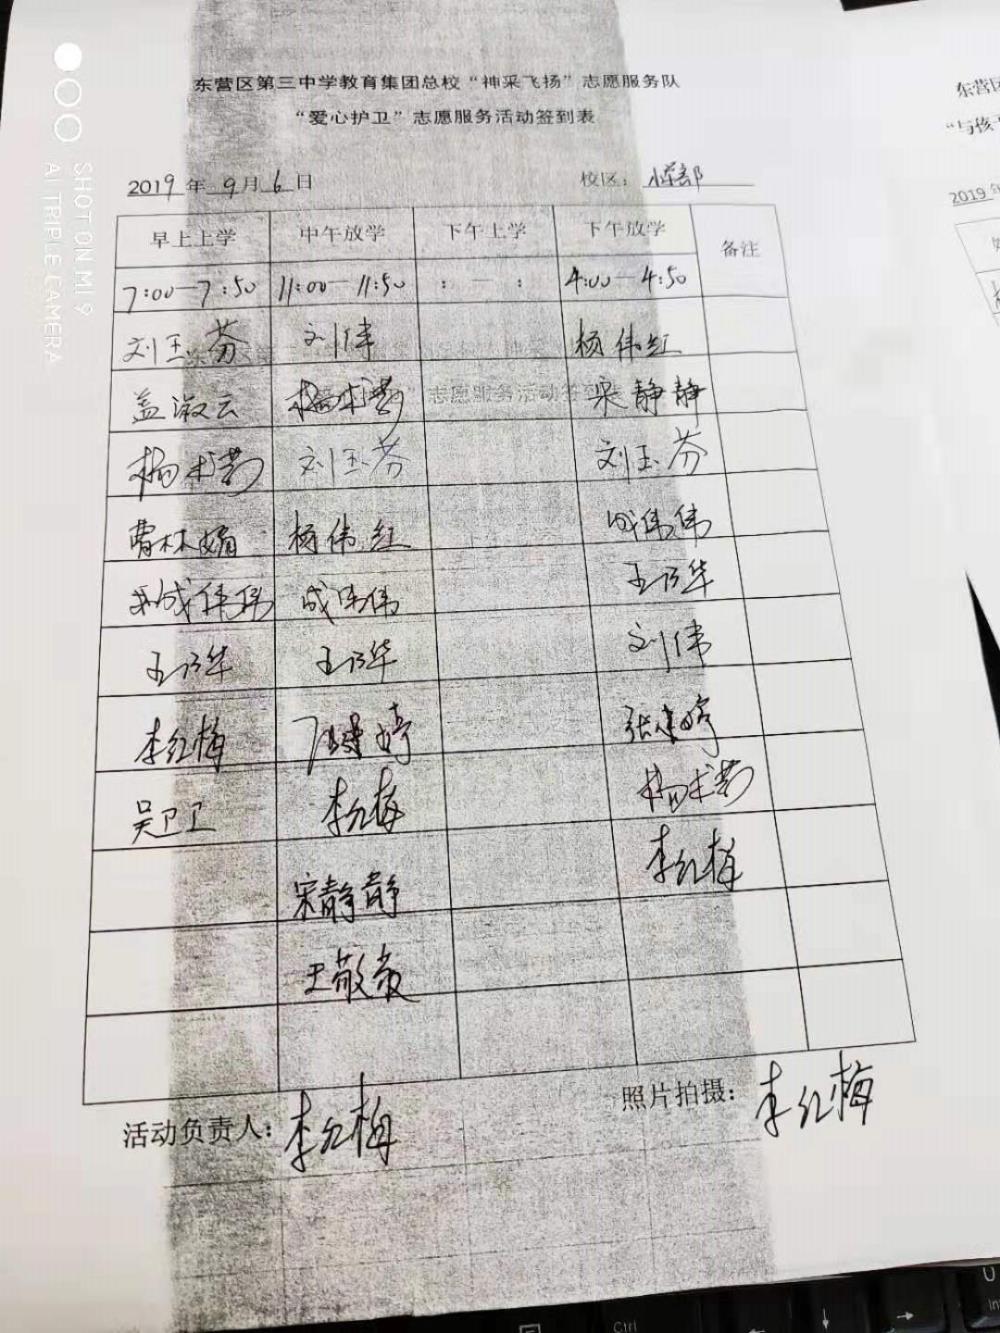 东营区第三中学教育集团总校“神采飞扬”志愿服务队
“爱心护卫”志愿服务活动签到表
2019年9月6日 校区：小学部
早上上学 中午放学 下午上学 下午放学 备注
7:00—7:50 11:00—11:50 : — : 4:00—4:50
刘玉芬 刘伟 杨伟红
盖淑云 宋静静
刘玉芬 刘玉芬
曹林娟 杨伟红 成伟伟
成伟伟 成伟伟 王乃华
王乃华 王乃华 刘伟
李红梅 张建婷
吴卫卫 李红梅
宋静静 李红梅
王敬敏
活动负责人：李红梅 照片拍摄：李红梅
SHOT ON MI 9
AI TRIPLE CAMERA
东营区
“与孩子
2019年
Ctrl